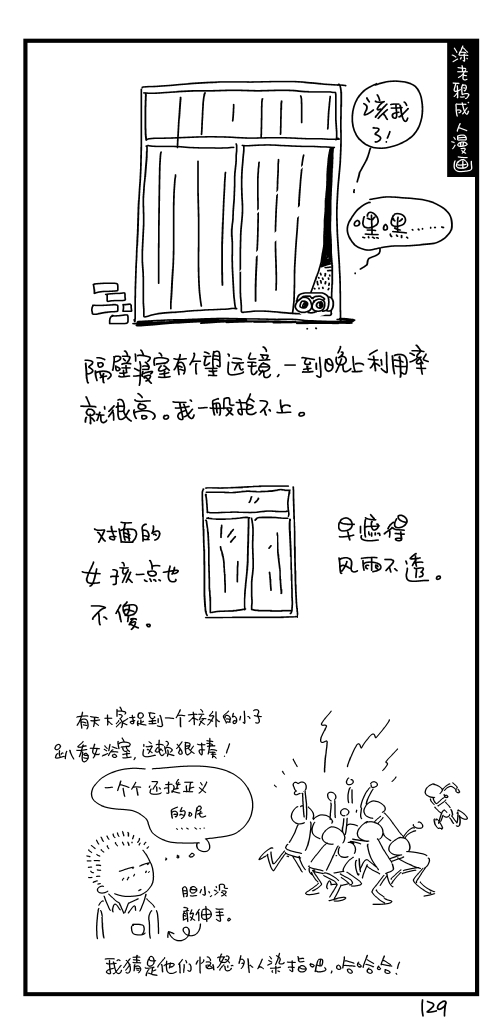 涂老鸦成人漫画
该我
了！
嘿嘿……
隔壁寝室有个望远镜，一到晚上利用率
就很高。我一般抢不上。
对面的
女孩一点也
不傻。
早遮得
风雨不透。
有天大家捉到一个校外的小子
趴看女浴室，这顿狠揍！
一个个还挺正义
的呢
……
胆小，没
敢伸手。
我猜是他们恼怒外人染指吧，哈哈哈！
129